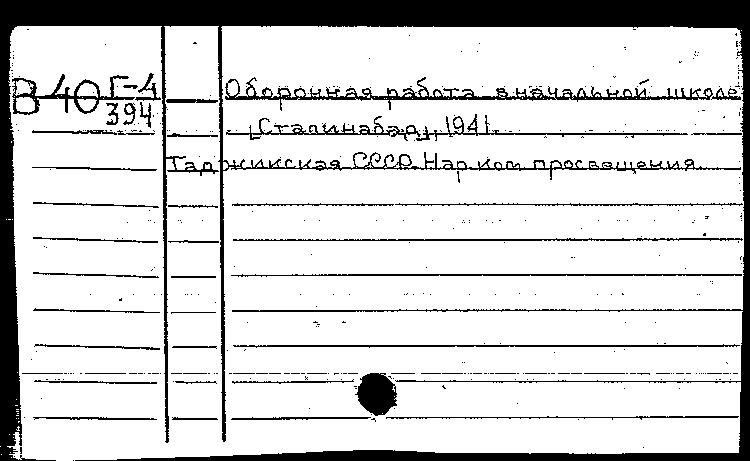 В 40 Г-4/394 Оборонная работа в начальной школе
[Сталинабад], 1941.
Таджикская ССР. Нар.ком просвещения.